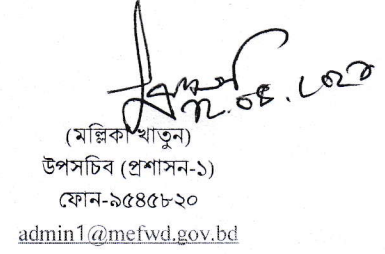 (মল্লিকা খাতুন)
উপসচিব (প্রশাসন-১)
ফোন-৯৫৪৫৮২০
admin1@mefwd.gov.bd